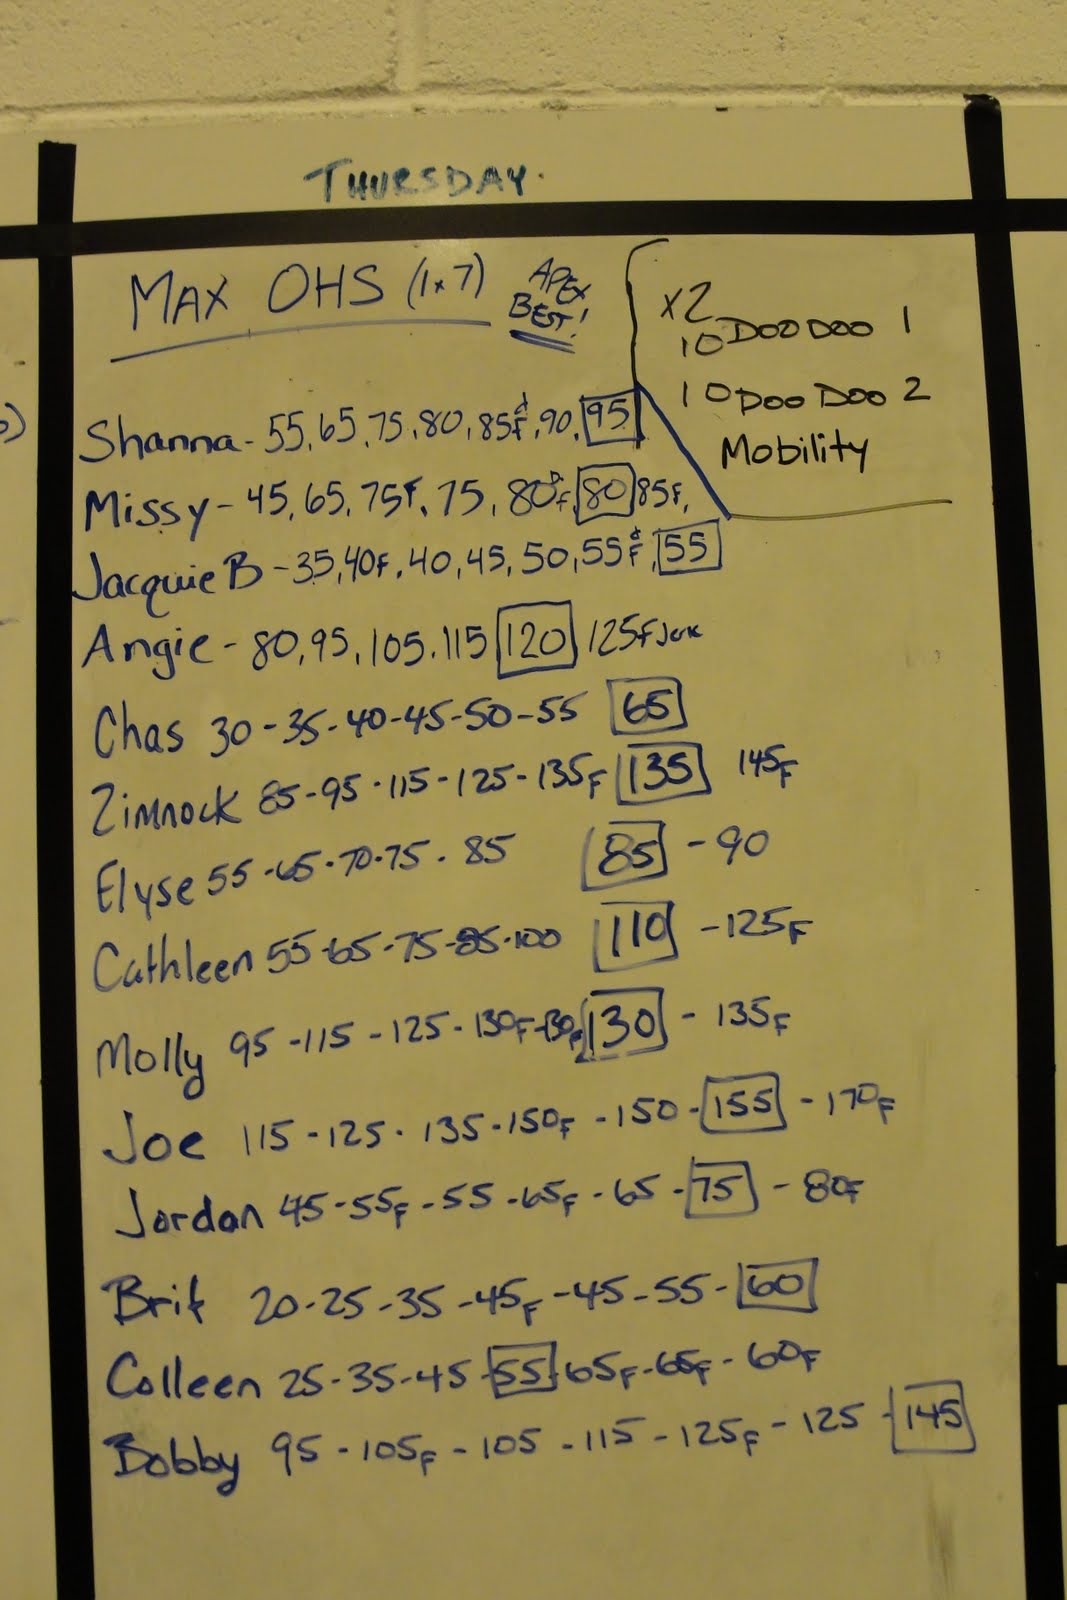 THURSDAY.
MAX OHS (1x7) APEX BEST!
x2
10 DOO DOO 1
10 DOO DOO 2
Mobility
Shanna - 55, 65, 75, 80, 85f, 90, 95
Missy - 45, 65, 75F, 75, 80f, 80 85f,
Jacquie B - 35, 40F, 40, 45, 50, 55f, 55
Angie - 80, 95, 105, 115 120 125F Jerk
Chas 30 - 35 - 40 - 45 - 50 - 55 65
Zimnock 85 - 95 - 115 - 125 - 135F 135 145F
Elyse 55 - 65 - 70 - 75 - 85 85 - 90
Cathleen 55 - 65 - 75 - 85 - 100 110 - 125F
Molly 95 - 115 - 125 - 130F - 130F 130 - 135F
Joe 115 - 125 - 135 - 150F - 150 - 155 - 170F
Jordan 45 - 55F - 55 - 65F - 65 - 75 - 80F
Brit 20 - 25 - 35 - 45F - 45 - 55 - 60
Colleen 25 - 35 - 45 - 55 - 65F - 65F - 60F
Bobby 95 - 105F - 105 - 115 - 125F - 125 - 145